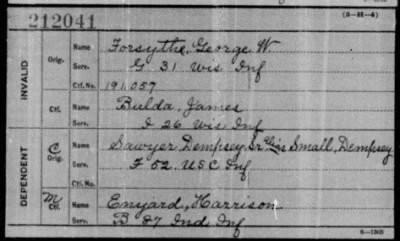 212041
(3-H-4)
INVALID
Orig. Name Forsythe, George W.
Serv. G 31 Wis Inf
Ctf. No. 191,057
Ctf. Name Bulda, James
Serv. I 26 Wis Inf
DEPENDENT
C Orig. Name Sawyer Dempsey, Sr alias Small, Dempsey
Serv. F 52. U.S.C Inf
Ctf. No.
M Ctf. Name Enyard, Harrison
Serv. B 87 Ind Inf